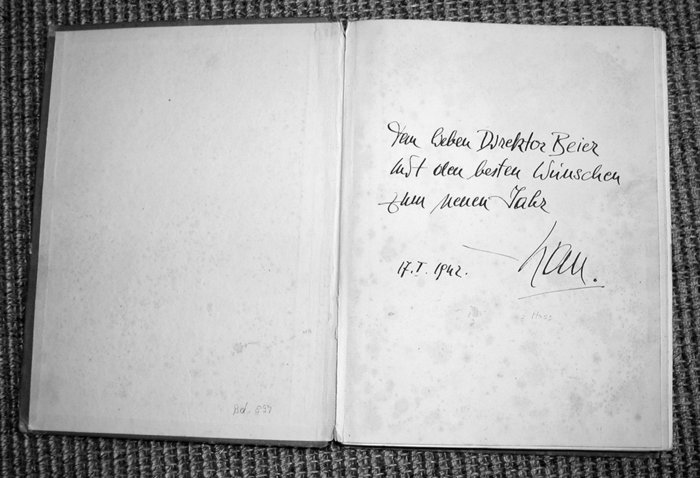 Dem lieben Direktor Beier
mit den besten Wünschen
zum neuen Jahr
17.I.1942.